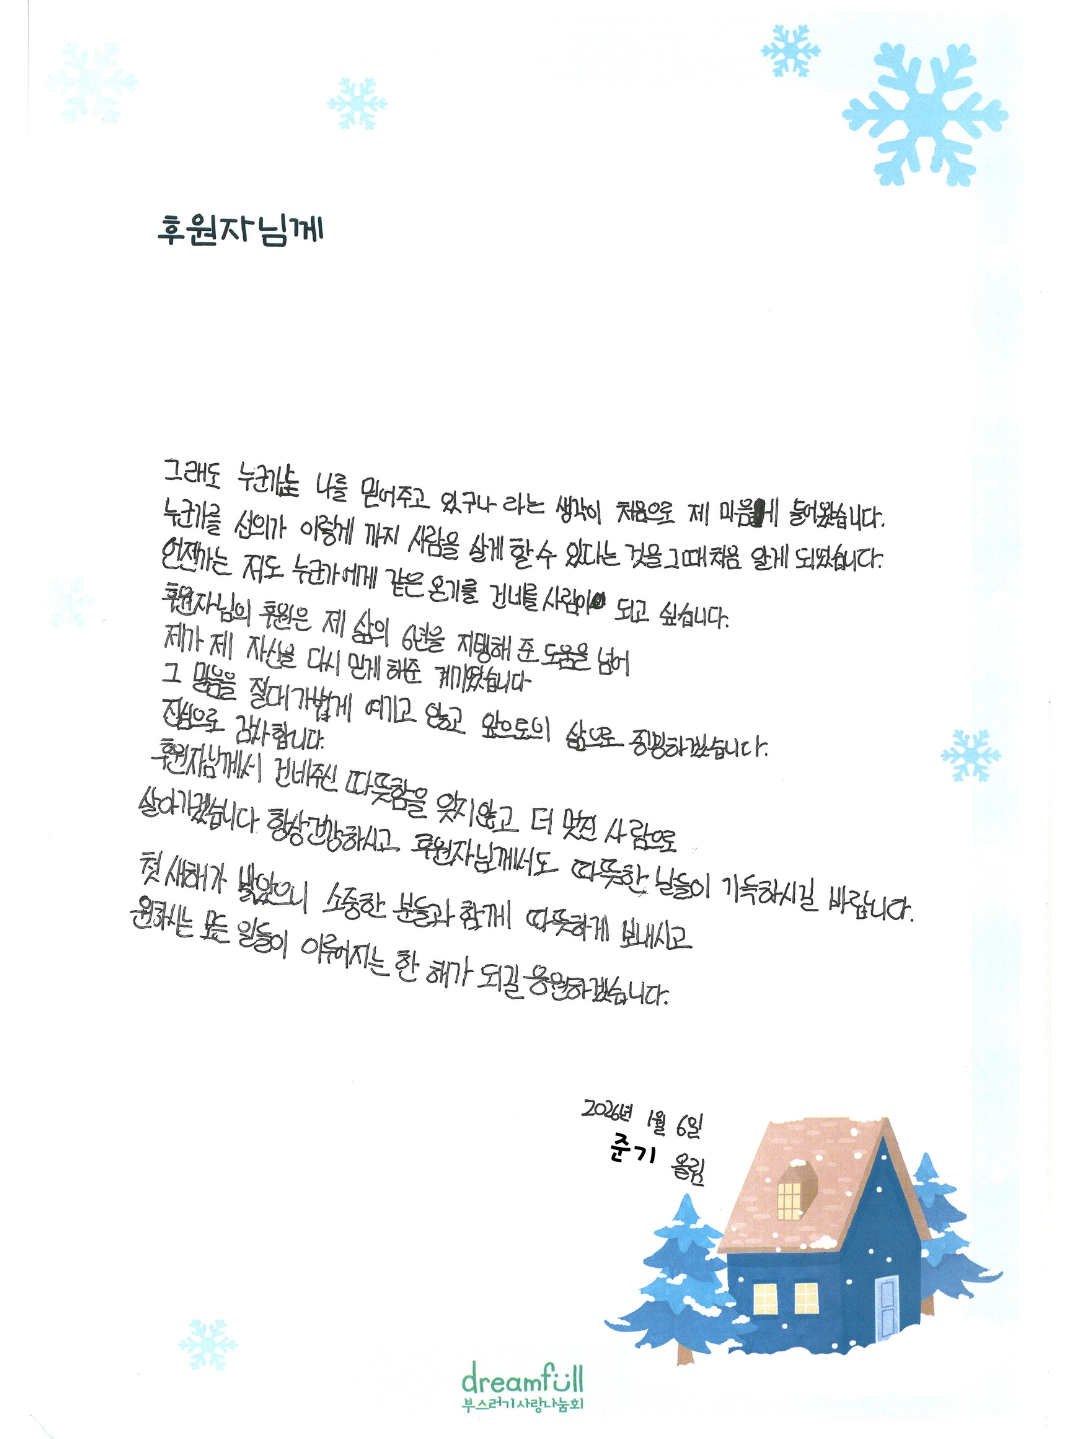 후원자님께
그래도 누군가는 나를 믿어주고 있구나 라는 생각이 처음으로 제 마음에 들어왔습니다.
누군가를 선의가 이렇게 까지 사람을 살게 할 수 있다는 것을 그때 처음 알게 되었습니다.
언젠가는 저도 누군가에게 같은 온기를 건네를 사람이 되고 싶습니다.
후원자님의 후원은 제 삶의 6년을 지탱해 준 도움을 넘어
제가 제 자신을 다시 믿게 해준 계기였습니다
그 믿음을 절대 가볍게 여기고 않고 앞으로의 삶으로 증명하겠습니다.
진심으로 감사합니다.
후원자님께서 건네주신 따뜻함을 잊지않고 더 멋진 사람으로
살아가겠습니다 항상건강하시고 후원자님께서도 따뜻한 날들이 가득하시길 바랍니다.
첫 새해가 밝았으니 소중한 분들과 함께 따뜻하게 보내시고
원하시는 모든 일들이 이루어지는 한 해가 되길 응원하겠습니다.
2026년 1월 6일
준기 올림
dreamfull
부스러기사랑나눔회